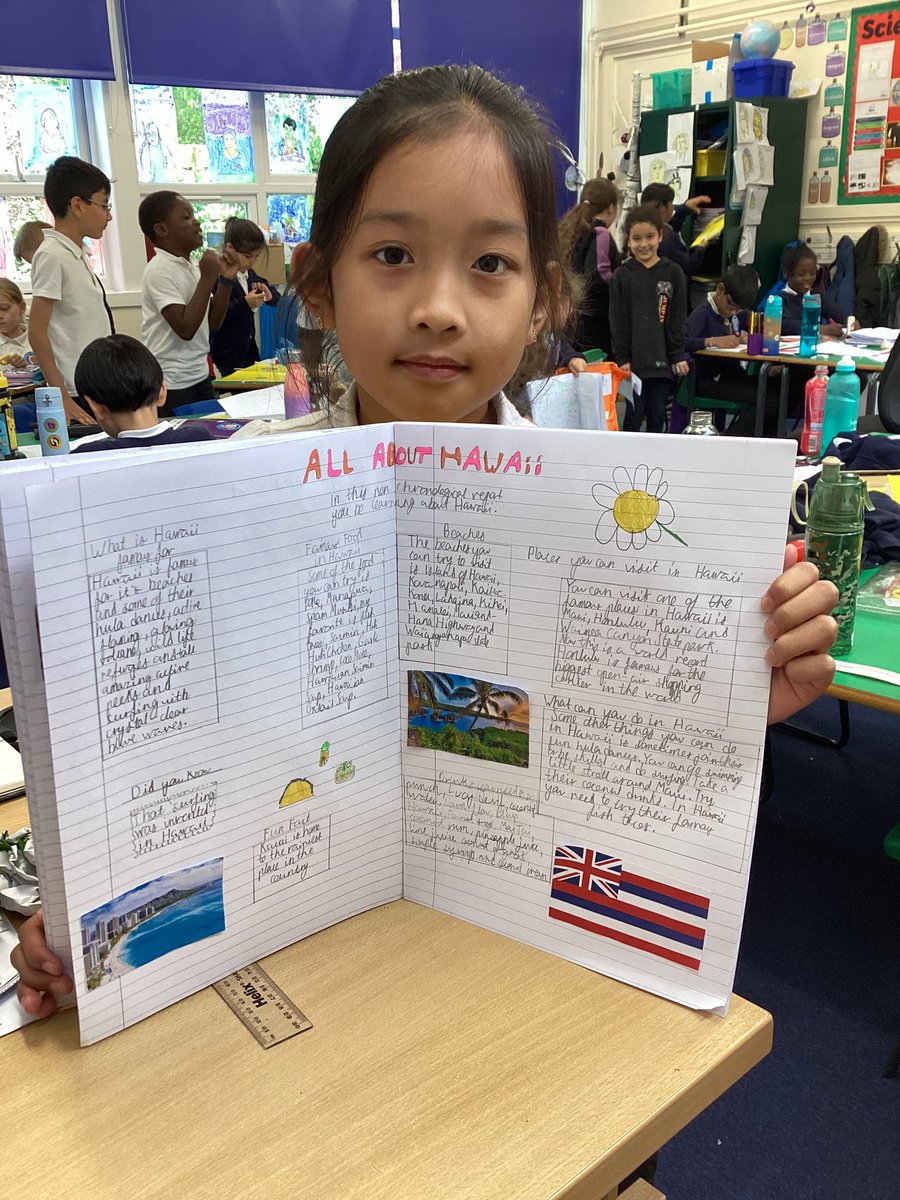 ALL ABOUT HAWAii
In this non chronological repot
you be learning about Hawaii.
What is Hawaii
famous for
Hawaii is famous
for it's beaches
and some of their
hula dance, active
volcano, wild life
refuges and all
amazing active
needs and
surfing with
crystal clear
blue waves.
Did you know
That surfing
was invented
in Hawaii
Famous Food
in Hawaii
Some of the food
you can try is
Poke,
Spam Musubi, my
favourite is
Saimin,
Huli chicken,
Shrimp,
Hawaiian Saimin
Soup, Hawaiian
Oxtail Soup.
Fun Fact
Kauai is home
to the rainiest
place in the
country
Beaches
The beaches you
can try to visit
is Island of Hawaii,
Kaanapali, Kailua-
Kona, Lahaina, Kihei,
Hanalei,
Hana Highway and
park
Places you can visit in Hawaii
You can visit one of the
famous places in Hawaii is
Maui, Honolulu, Kauai and
Waimea Canyon State park.
this is a world record
Honolulu is famous for the
biggest open-air shopping
center in the world
What can you do in Hawaii
Some other things you can do
in Hawaii is sometimes join their
fun hula dances. You can go swimming
skilled and do surfing. Take a
little stroll around Maui. Try
their coconut drinks. In Hawaii
you need to try their famous
fish tacos.
punch, Lava flow, coconut
water, Blue
Hawaii, Mai Tai
coconut rum, pineapple juice,
lime juice
simple syrup and cream
Helix
Scie